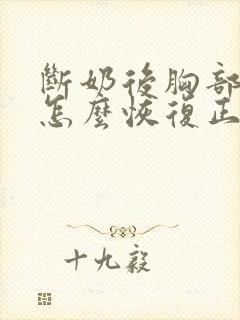 斷奶後胸部
怎麼恢復正
十九毅